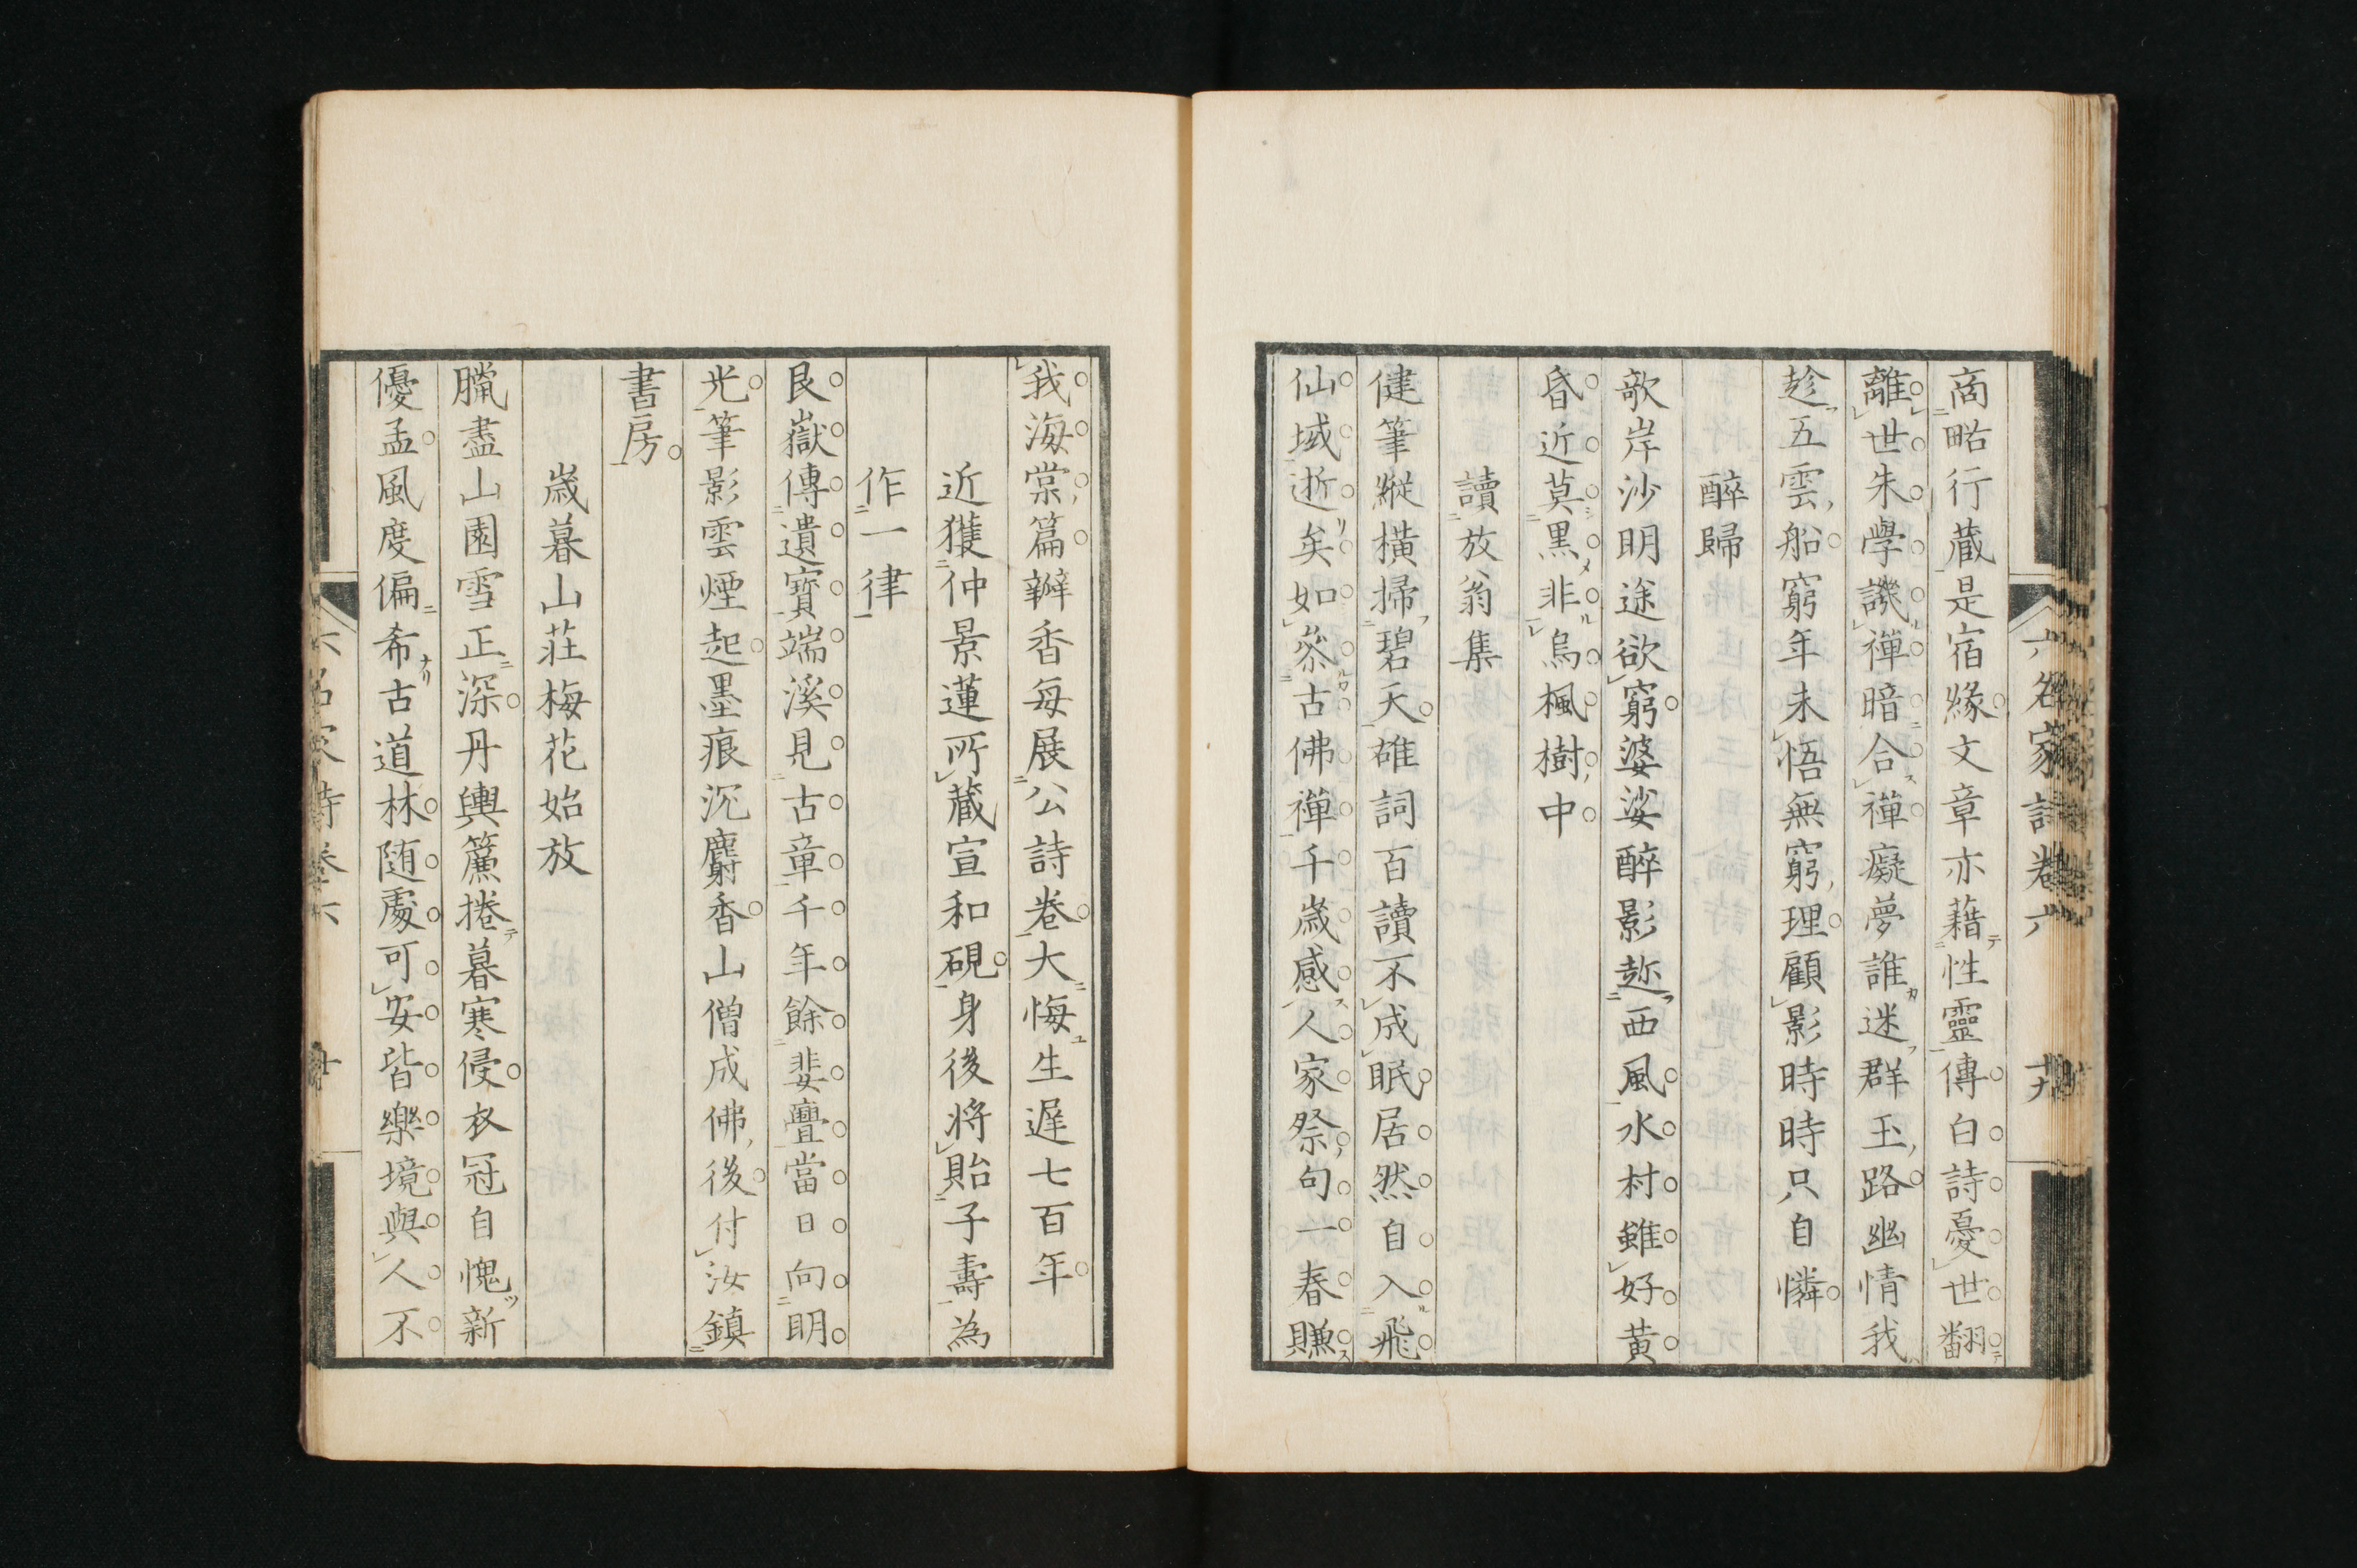 六名家詩卷六 十九
商略行藏是宿緣文章亦藉性靈傳白詩憂世翻
離世朱學譏禪暗合禪癡夢誰迷群玉路幽情我
趁五雲船窮年未悟無窮理顧影時時只自憐
醉歸
歌岸沙明途欲窮婆娑醉影趂西風水村雖好黃
昏近莫黑非烏楓樹中
讀放翁集
健筆縱橫掃碧天雄詞百讀不成眠居然自入飛
仙域逝矣如參古佛禪千歲感人家祭句一春賺
我海棠篇辦香每展公詩卷大悔生遲七百年
近獲仲景蓮所藏宣和硯身後將貽子壽為
作一律
艮嶽傳遺寶端溪見古章千年餘婁亹當日向明
光筆影雲煙起墨痕沉麝香山僧成佛後付汝鎮
書房
歲暮山莊梅花始放
臘盡山園雪正深丹輿簾捲暮寒侵衣冠自愧新
優孟風度偏希古道林随處可安皆樂境與人不
六名家詩卷六